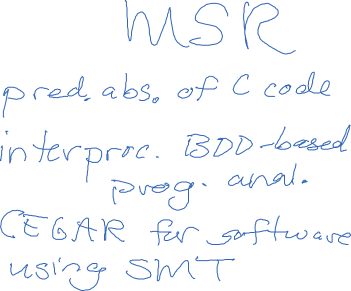 MSR
pred. abs. of C code
interproc. BDD-based
prog. anal.
CEGAR for software
using SMT